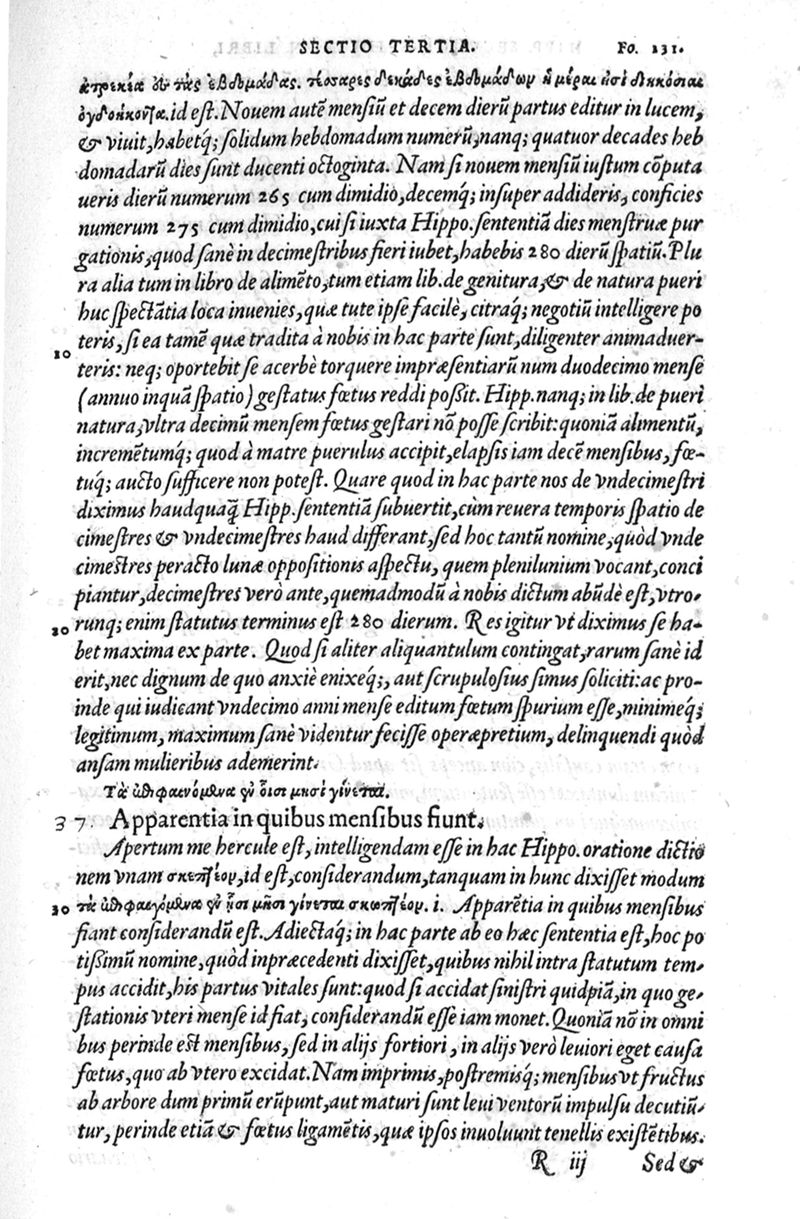 SECTIO TERTIA. Fo. 231.
ἀτρεκέα ἐς τὰς ἑβδομάδας. τέσσαρες δεκάδες ἑβδομάδων ἡμέραι εἰσὶ διηκόσιαι
ὀγδοήκοντα. id est. Nouem autē mensiū et decem dierū partus editur in lucem,
& viuit, habetq; solidum hebdomadum numerū, nanq; quatuor decades heb
domadarū dies sunt ducenti octoginta. Nam si nouem mensiū iustum cōputa
ueris dierū numerum 265 cum dimidio, decemq; insuper addideris, conficies
numerum 275 cum dimidio, cui si iuxta Hippo. sententiā dies menstruæ pur
gationis, quod sanè in decimestribus fieri iubet, habebis 280 dierū spatiū. Plu
ra alia tum in libro de alimēto, tum etiam lib. de genitura, & de natura pueri
huc spectātia loca inuenies, quæ tute ipse facilè, citraq; negotiū intelligere po
teris, si ea tamē quæ tradita à nobis in hac parte sunt, diligenter animaduer-
10 teris: neq; oportebit se acerbè torquere impræsentiarū num duodecimo mense
(annuo inquā spatio) gestatus fœtus reddi possit. Hipp. nanq; in lib. de pueri
natura, vltra decimū mensem fœtus gestari nō posse scribit: quoniā alimentū,
incremētumq; quod à matre puerulus accipit, elapsis iam decē mensibus, fœ-
tuq; aucto sufficere non potest. Quare quod in hac parte nos de vndecimestri
diximus haudquaq̄ Hipp. sententiā subuertit, cùm reuera temporis spatio de
cimestres & vndecimestres haud differant, sed hoc tantū nomine, quòd vnde
cimestres peracto lunæ oppositionis aspectu, quem plenilunium vocant, conci
piantur, decimestres verò ante, quemadmodū à nobis dictum abūdè est, vtro-
20 runq; enim statutus terminus est 280 dierum. Res igitur vt diximus se ha-
bet maxima ex parte. Quod si aliter aliquantulum contingat, rarum sanè id
erit, nec dignum de quo anxiè enixeq;, aut scrupulosius simus soliciti: ac pro-
inde qui iudicant vndecimo anni mense editum fœtum spurium esse, minimeq;
legitimum, maximum sanè videntur fecisse operæpretium, delinquendi quòd
ansam mulieribus ademerint.
Τὰ ἐπιφαινόμενα ἐν οἷσι μησὶ γίνεται.
37. Apparentia in quibus mensibus fiunt.
Apertum me hercule est, intelligendam esse in hac Hippo. oratione dictio
nem vnam σκεπτέον, id est, considerandum, tanquam in hunc dixisset modum
30 τὰ ἐπιφαινόμενα ἐν οἷσι μησὶ γίνεται σκωπτέον. i. Apparētia in quibus mensibus
fiant considerandū est. Adiectaq; in hac parte ab eo hæc sententia est, hoc po
tissimū nomine, quòd in præcedenti dixisset, quibus nihil intra statutum tem-
pus accidit, his partus vitales sunt: quod si accidat sinistri quidpiā, in quo ge-
stationis vteri mense id fiat, considerandū esse iam monet. Quoniā nō in omni
bus perinde est mensibus, sed in alijs fortiori, in alijs verò leuiori eget causa
fœtus, quo ab vtero excidat. Nam in primis, postremisq; mensibus vt fructus
ab arbore dum primū erūpunt, aut maturi sunt leui ventorū impulsu decutiū-
tur, perinde etiā & fœtus ligamētis, quæ ipsos inuoluunt tenellis existētibus.
R iij Sed &